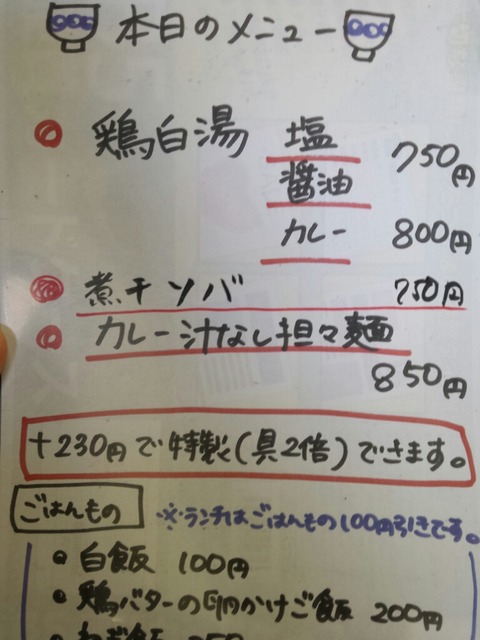 本日のメニュー
鶏白湯 塩 750円
醤油
カレー 800円
煮干ソバ 750円
カレー汁なし担々麺
850円
+230円で特製(具2倍)できます。
ごはんもの ※ランチはごはんもの100円引きです。
白飯 100円
鶏バターの卵かけご飯 200円